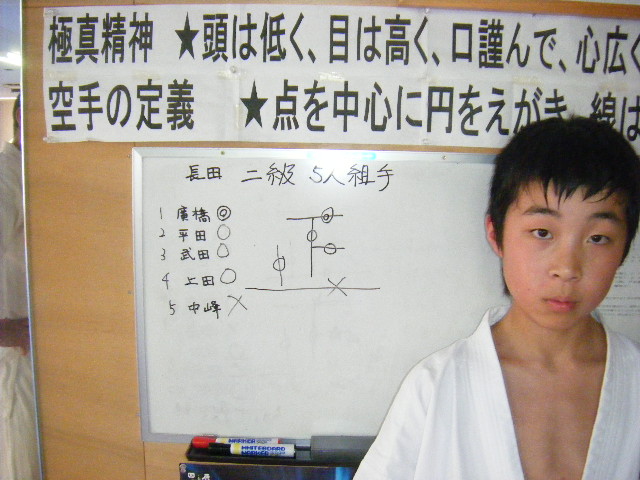 極真精神 ★頭は低く、目は高く、口謹んで、心広く
空手の定義 ★点を中心に円をえがき、線は
長田 二級 5人組手
1 廣橋 ◎
2 平田 ○
3 武田 ○
4 上田 ○
5 中峰 ×
WHITEBOARD
MARKER